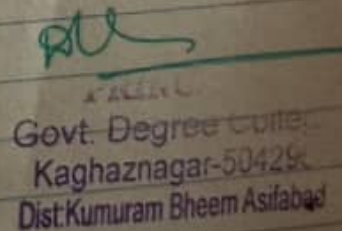 Govt. Degree
Kaghaznagar-50429
Dist:Kumuram Bheem Asifabad